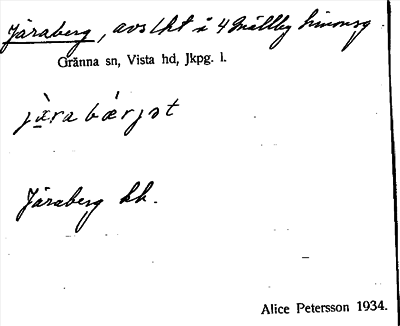 Järaberg, avs lht i 4 Mällby hmnsg.
Gränna sn, Vista hd, Jkpg. l.
jä̀ra bǽrjət
Järaberg kk.
Alice Petersson 1934.